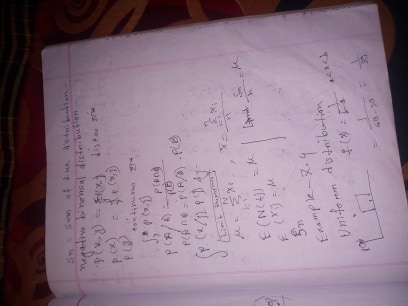 Sn = Sum of the distribution
negative binomial distribution
P(x,y) =
P(x) = P(x,y)
P(y)
continuous
∫ P(x,y)
P(A/B) = P(A∩B) / P(B)
P(A∩B) = P(A/B) . P(B)
∫ P(x/y) P(y) dy
Limit theorem
μ = Σ xi , x̄ = Σ xi / n
E(N(t)) = μ
E(xi) = μ | Limit Sn/n = μ
Sn
Example - 7.4
Uniform distribution
f(x) = 1/b-a a<x<b
= 1/60-30 = 1/30